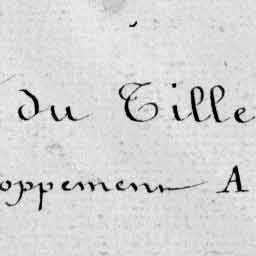 du Tille
oppement A